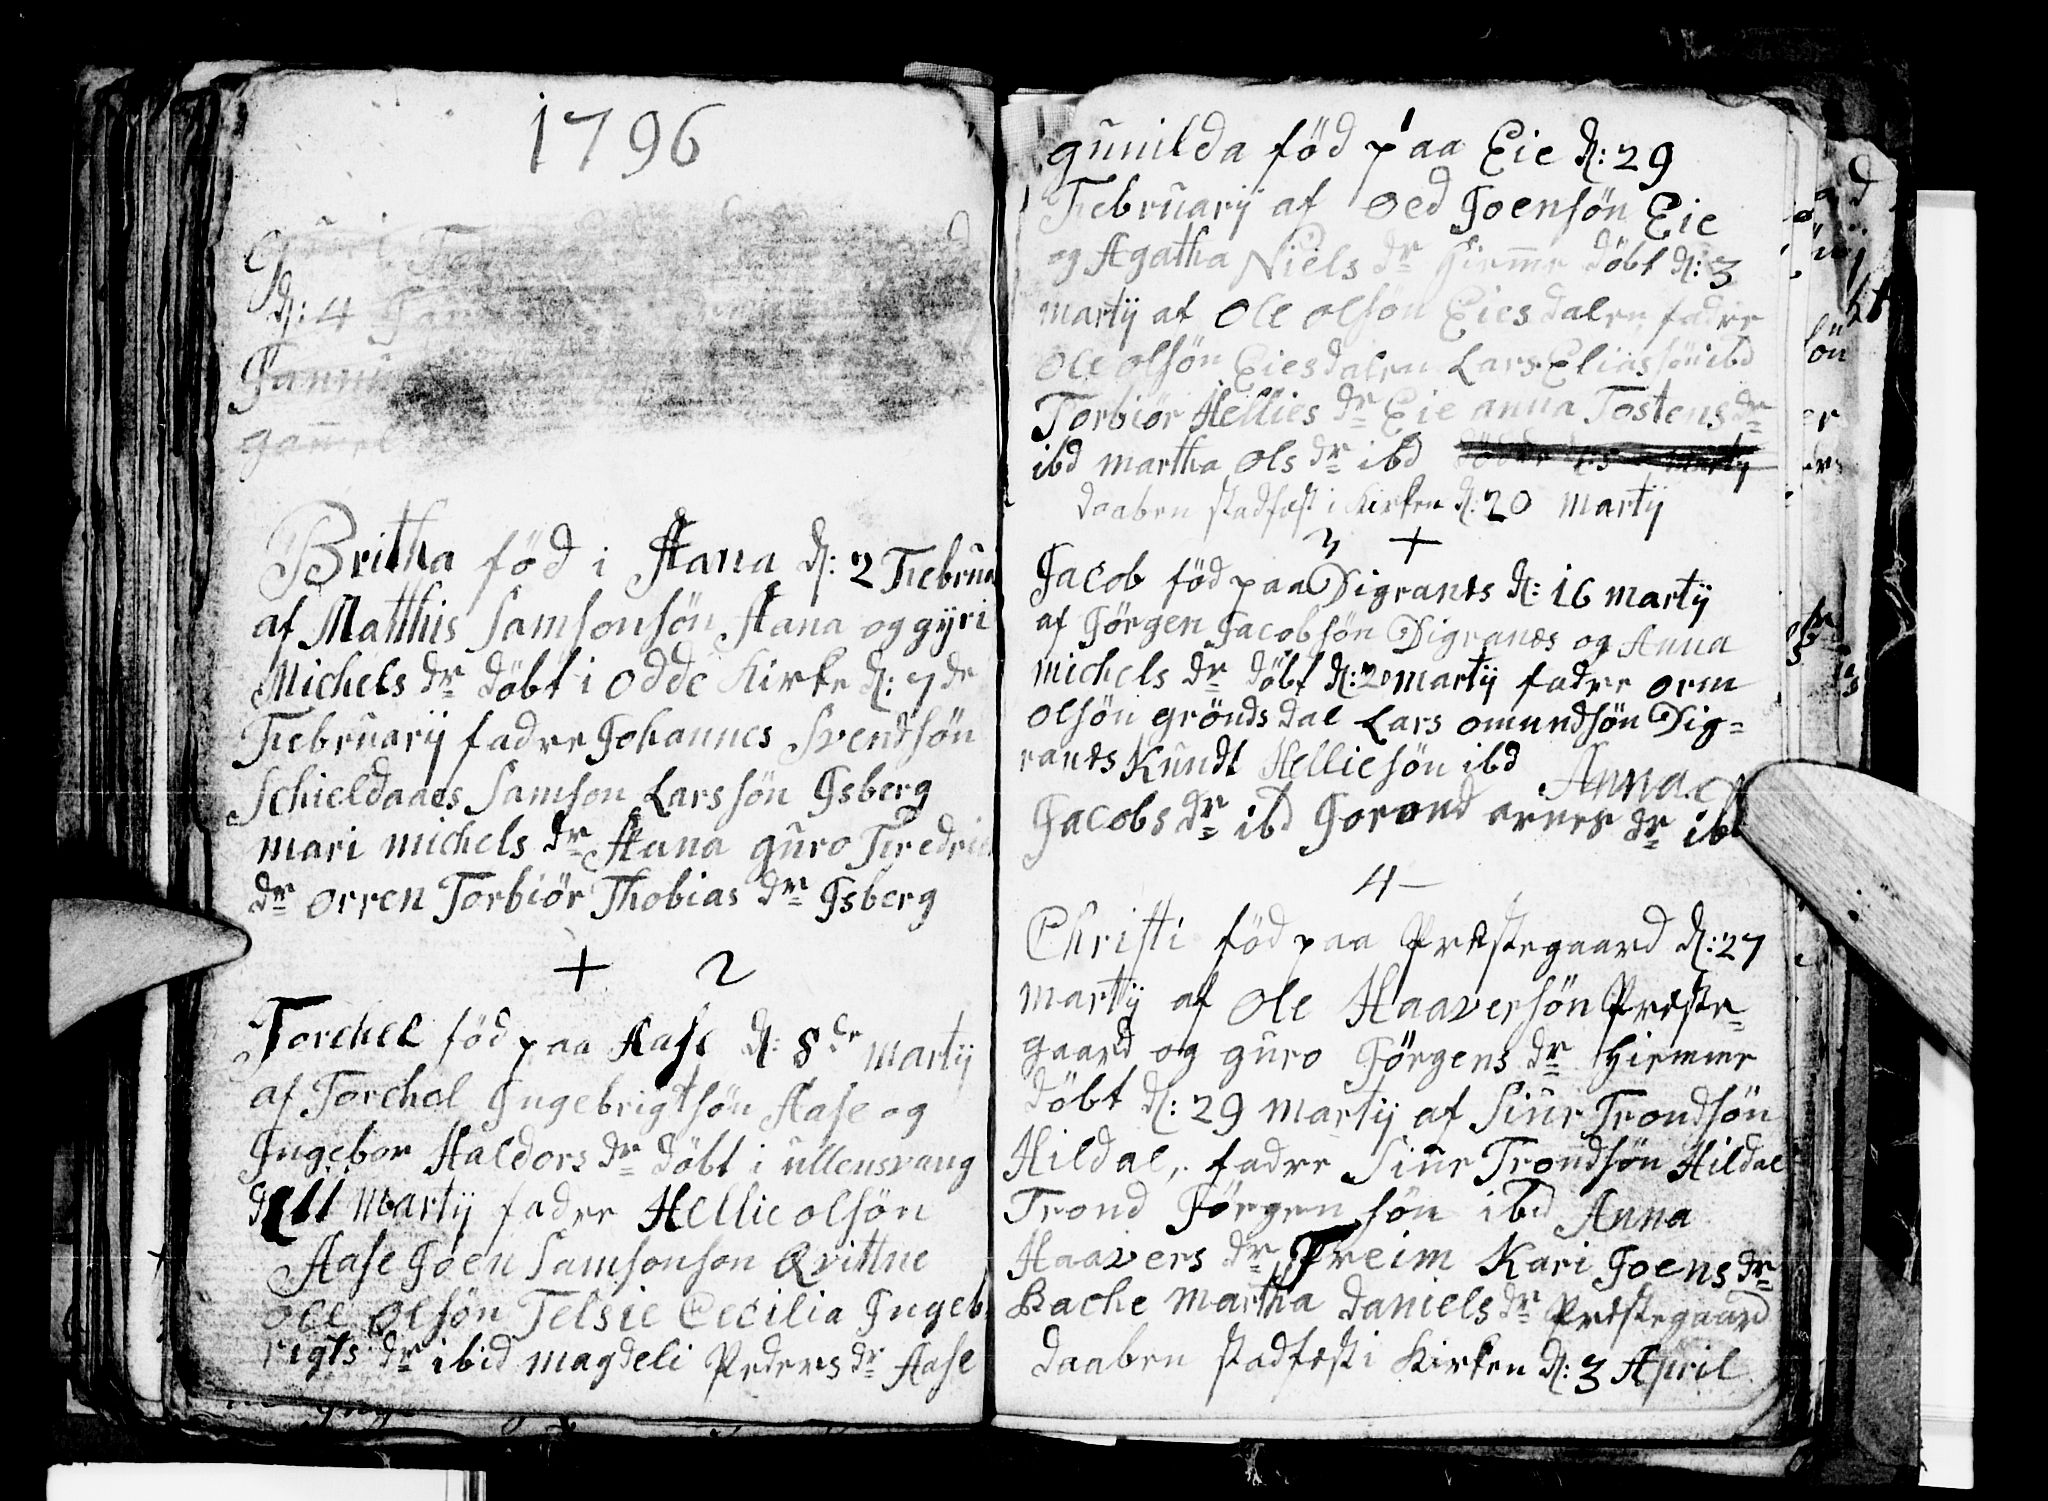 1796
d: 4
Britha föd i Aana d: 2 Februa
af Matthis Samsonsön Aana og gyri
Michels dr döbt i odde Kirke d: 7de
Februarij fadre Johannes Svendsön
Schieldaaes Samson Larssön Isberg
mari michels dr Aana guro Fredric
dr orren Torbiör Thobias dr Isberg
+ 2
Torchel föd paa Aase d: 8de martij
af Torchel Ingebrigtsön Aase og
Ingebor Haldors dr döbt i ullensvang
d 11 martij fadre Hellie olsön
Aase Joen Samsonson Qvittne
ole olsön Telsie Cecilia Ingeb
rigts dr ibid magdeli Peders dr Aase
1
gunilda föd paa Eie d: 29
Februarij af oed Joensön Eie
og Agatha Niels dr Hiemme döbt d: 3
martij af ole olsön Eiesdalen fadre
ole olsön Eiesdalen Lars Eliassön ibd
Torbiör Hellies dr Eie anna Tostens dr
ibd martha ols dr ibd martij
daaben stadfæst i Kirken d: 20 martij
3 +
Jacob föd paa Digranæs d: 16 martij
af Jörgen Jacobsön Digranæs og Anna
michels dr döbt d: 20 martij fadre orm
olsön gröndsdal Lars omundsön Dig=
ranæs Kundt Helliesön ibd Anna
Jacobs dr ibd Gorond arnes dr ibd
4 –
Christi föd paa Præstegaard d: 27
martij af ole Haaversön Præste=
gaard og guro Jörgens dr Hiemme
döbt d: 29 martij af Siur Trondsön
Hildal, fadre Siur Trondsön Hildal
Trond Jörgensön ibd Anna
Haavers dr Freim Kari Joens dr
Bache martha daniels dr Præstegaard
daaben stadfæst i Kirken d: 3 April